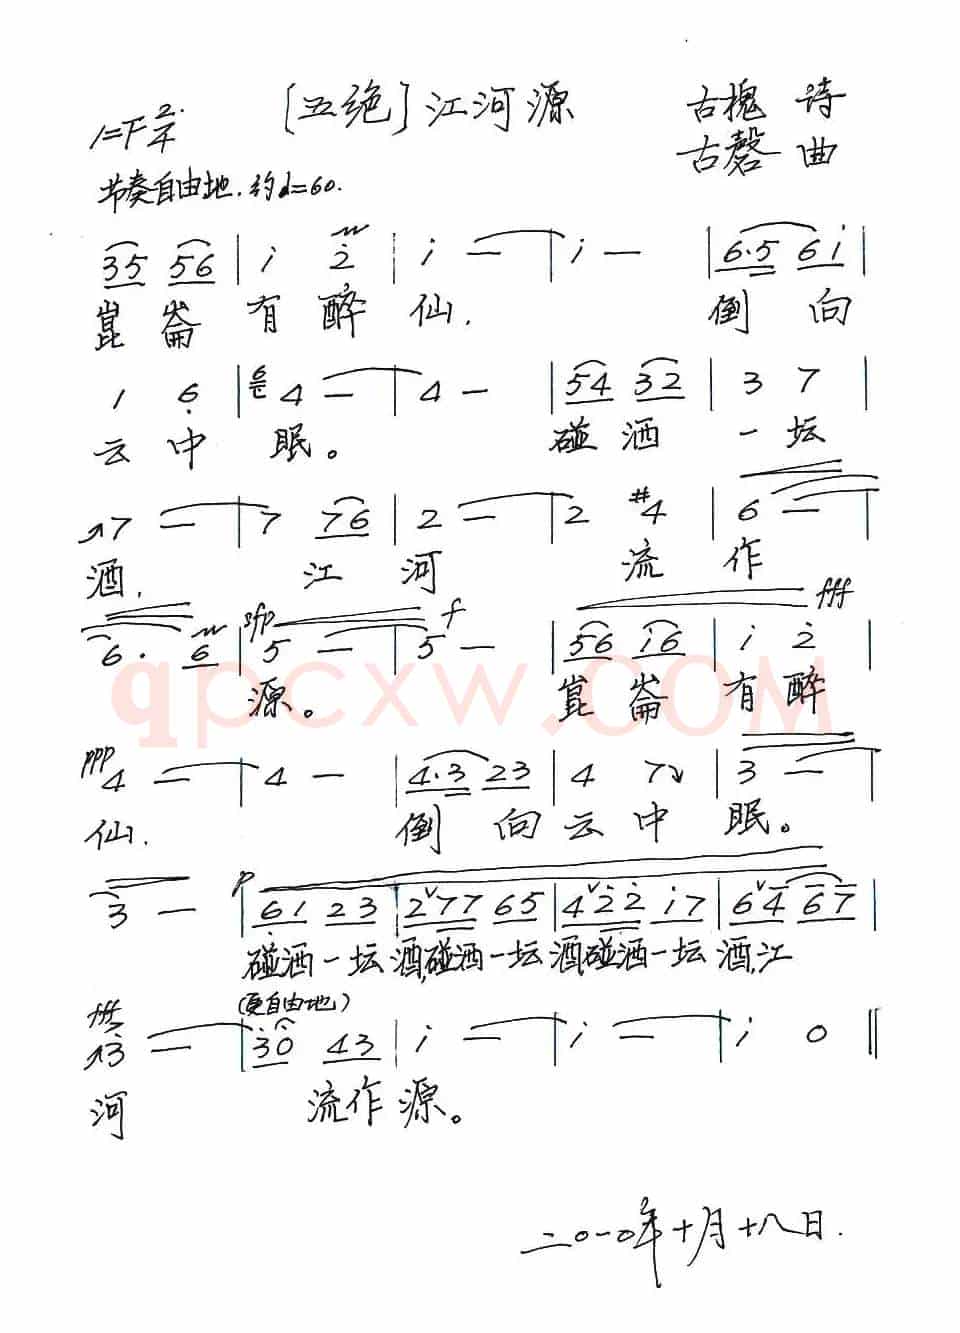 1=F 2/4
[五绝]江河源
古槐 诗
古磬 曲
节奏自由地.约♩=60.
35 56 | i 2̇ | i — | i — | 6·5 6i |
崑崙有醉仙. 倒向
1 6̣ | 4 — | 4 — | 54 32 | 3 7
云中眠。 碰洒一坛
↗7 — | 7 76 | 2 — | 2 #4 | 6 — |
酒. 江河 流作
6· 6 | sfp 5 — | f 5 — | 56 i6 | fff i 2̇ |
源。 崑崙有醉
qpcxw.COM
ppp 4 — | 4 — | 4·3 23 | 4 7↘ | 3 — |
仙. 倒向云中眠。
3 — | p 6̣1 23 | 2∨77 65 | 4∨2̇2̇ i7 | 6∨4 67 |
碰洒一坛酒,碰洒一坛酒,碰洒一坛酒,江
(更自由地)
fff ↗3̇ — | 3̇0 43 | i — | i — | i 0 ‖
河 流作源。
二〇一〇年十月十八日.